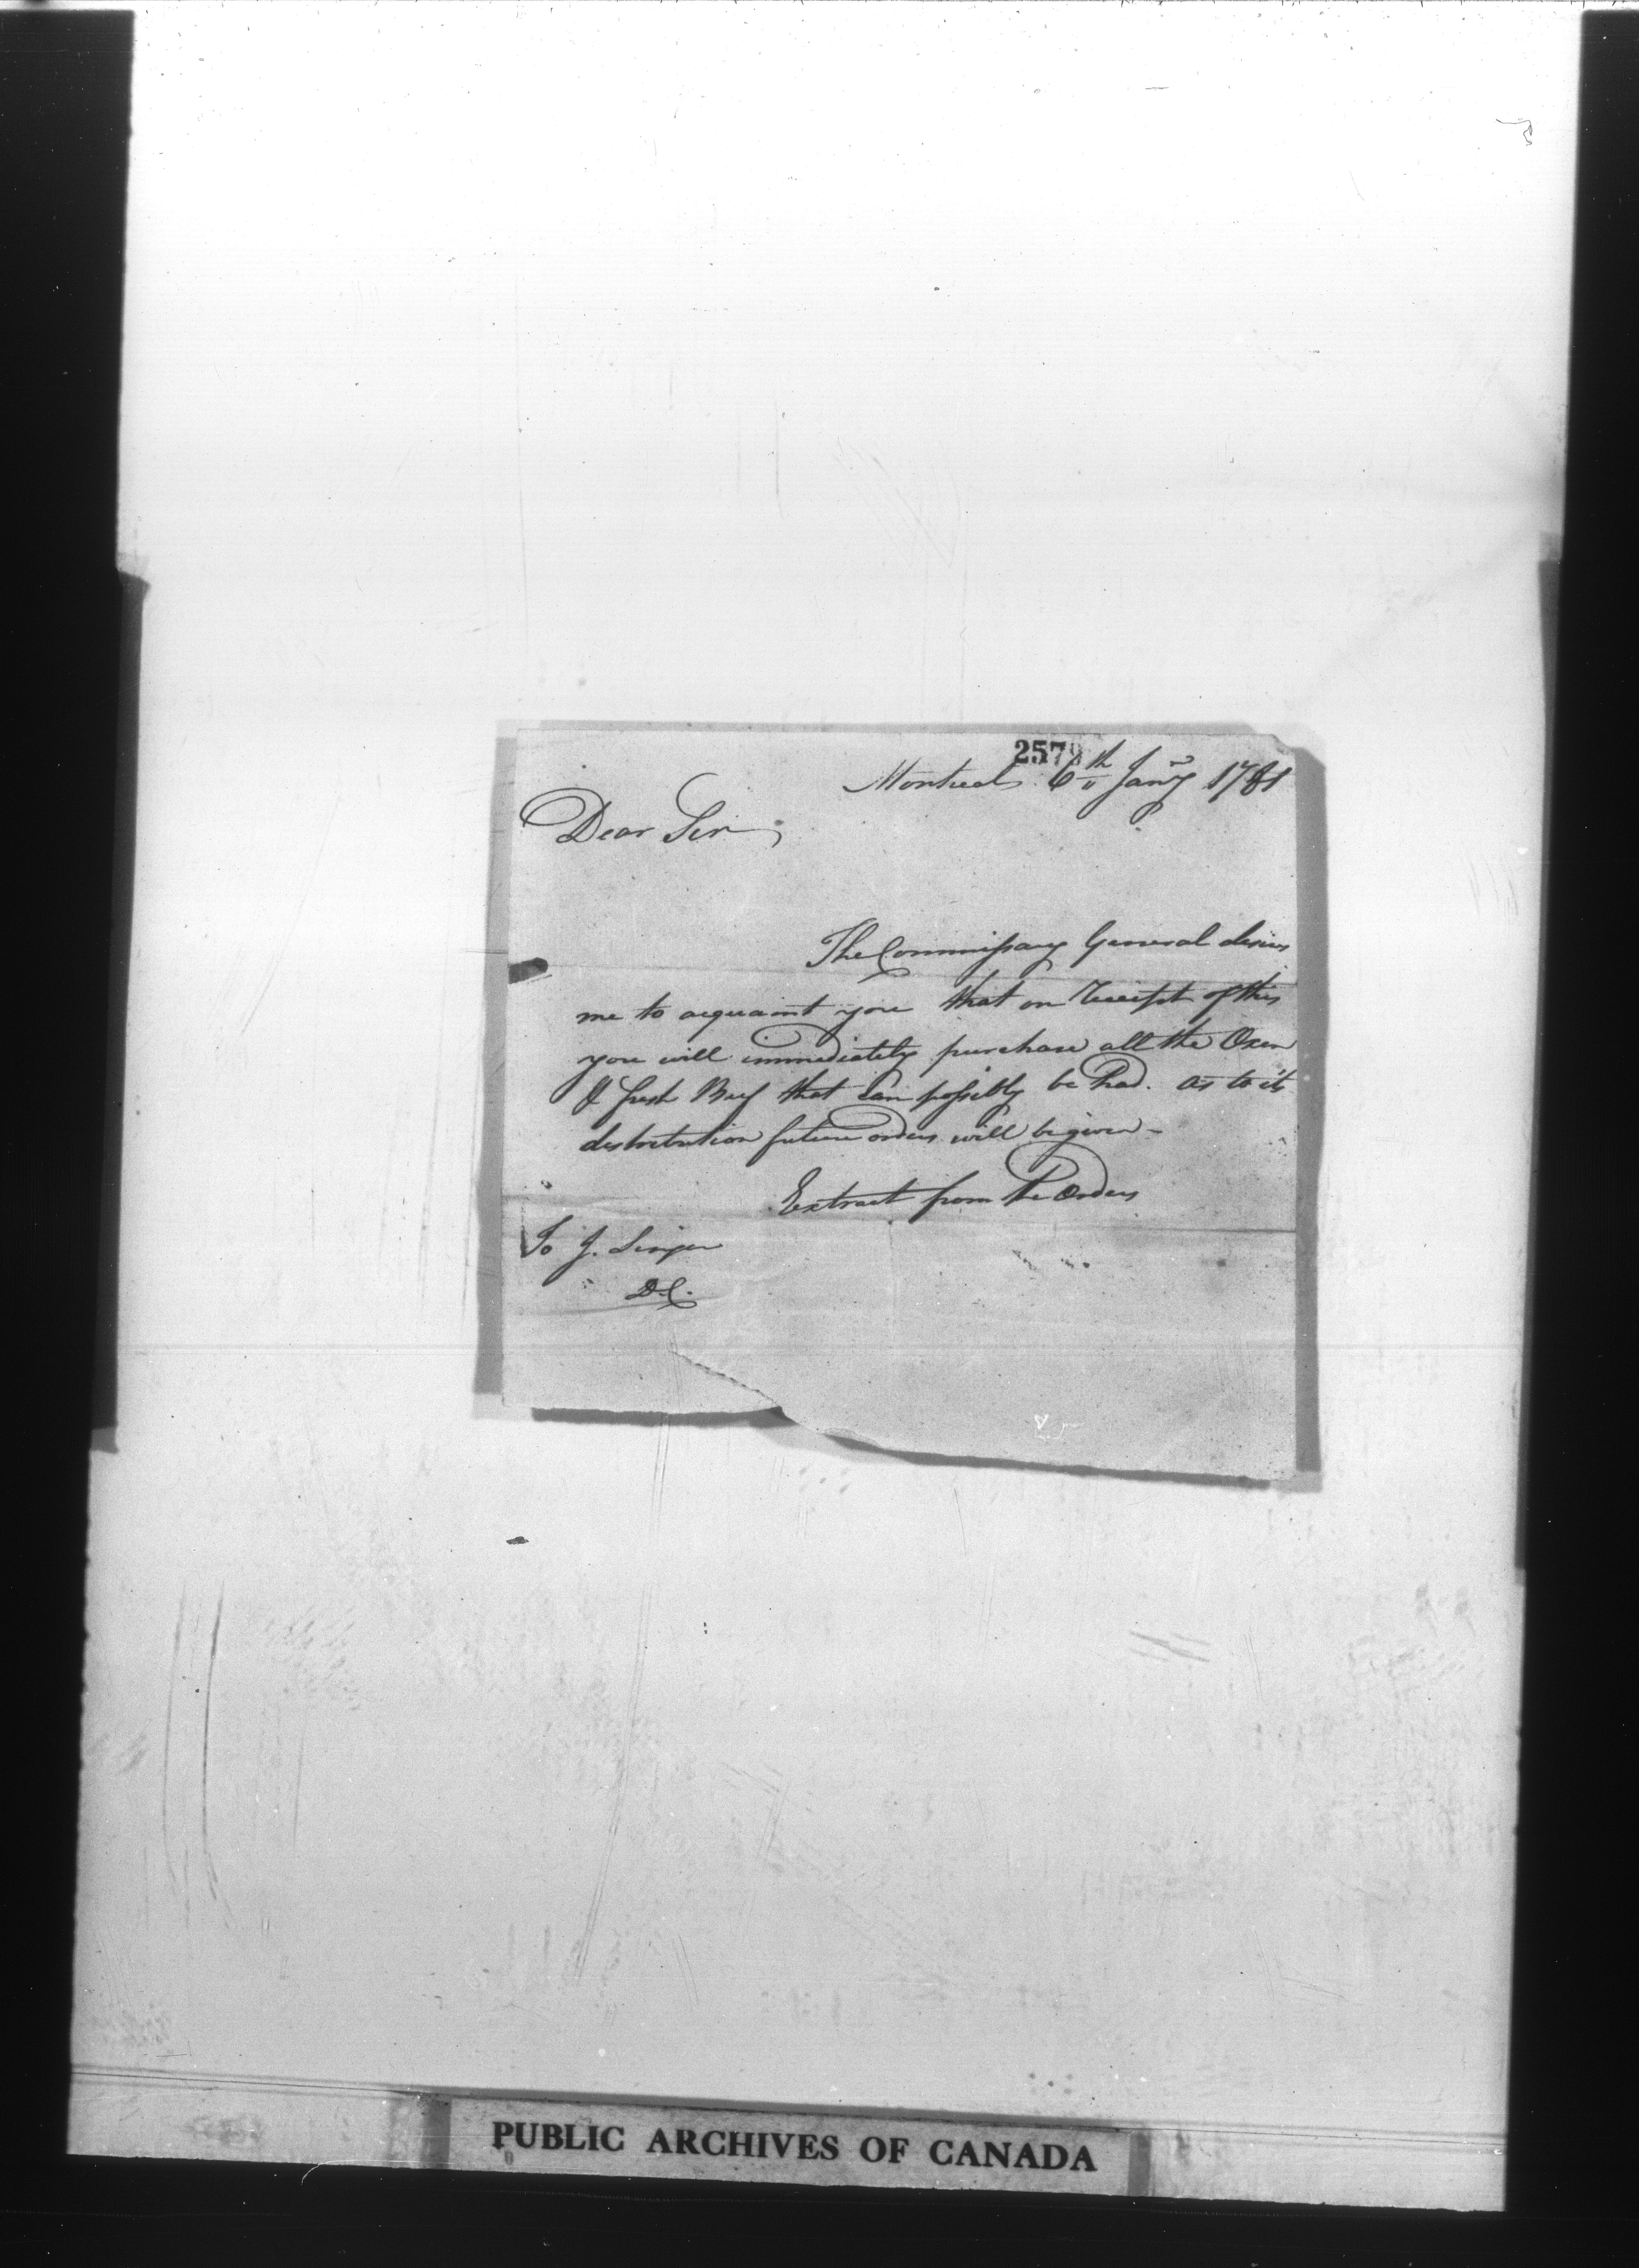 2578
Montreal 6th Jany 1781
Dear Sir,
The Commissary General desires
me to acquaint you that on Receipt of this
you will immediately purchase all the Oxen
& fresh Beef that can possibly be had. as to its
distribution future orders will be given -
Extract from the Orders
To J. Singer
D.C.
PUBLIC ARCHIVES OF CANADA